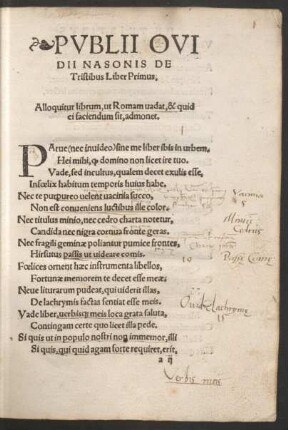 PVBLII OVI
DII NASONIS DE
Tristibus Liber Primus.
Alloquitur librum, ut Romam uadat, & quid
ei faciendum sit, admonet.
PArue (nec inuideo) sine me liber ibis in urbem,
Hei mihi, ꝙ domino non licet ire tuo.
Vade, sed incultus, qualem decet exulis esse,
Infœlix habitum temporis huius habe.
Nec te purpureo uelent uacinia succo,
Non est conueniens luctibus ille color.
Nec titulus minio, nec cedro charta notetur,
Candida nec nigra cornua fronte geras.
Nec fragili geminæ poliantur pumice frontes,
Hirsutus passis ut uideare comis.
Fœlices ornent hæc instrumenta libellos,
Fortunæ memorem te decet esse meæ.
Neue liturarum pudeat, qui uiderit illas,
De lachrymis factas sentiat esse meis.
Vade liber, uerbisq; meis loca grata saluta,
Contingam certe quo licet illa pede.
Si quis ut in populo nostri non immemor, illi
Si quis, qui quid agam forte requiret, erit,
a ij
Vacinia
5
Minium
Cedrus
10
Passis Comis
Ouid Lachrymæ
15
Verbis meis